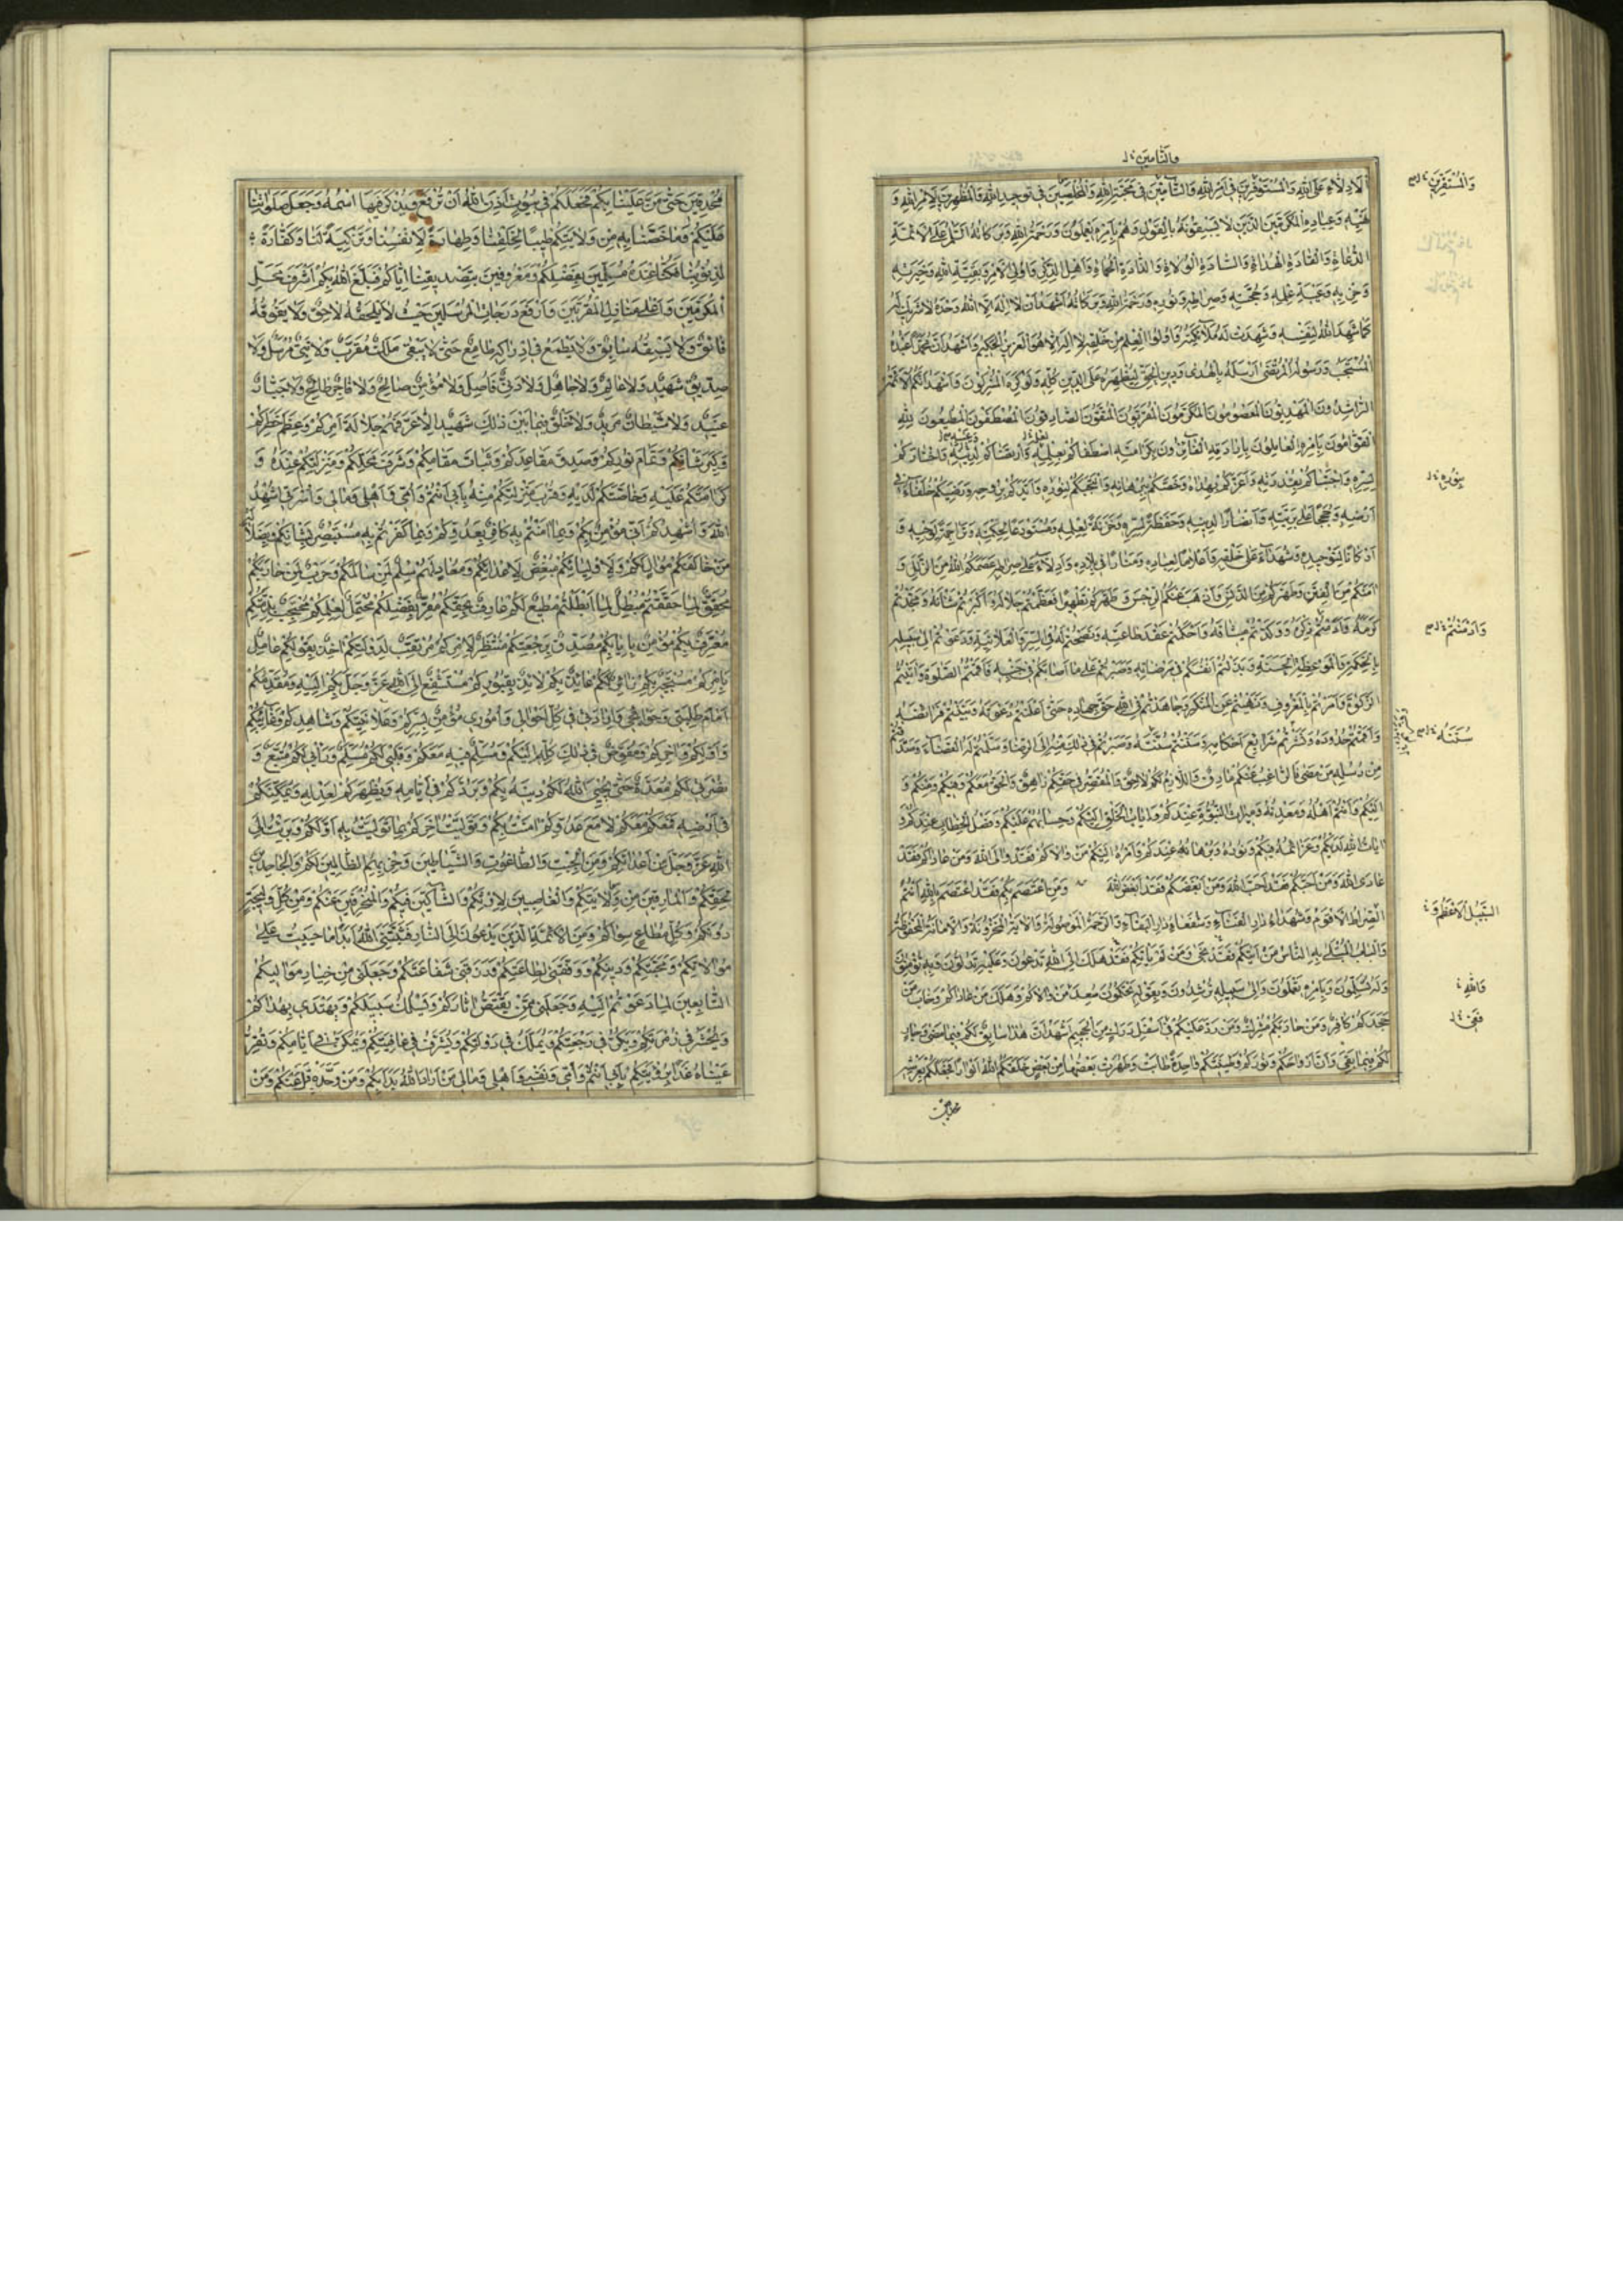 وَالتَّامِينَ خ ل
وَالْمُسْتَقِرِّينَ خ ل
اَلْاَدِلَّاءِ عَلَى اللهِ وَالْمُسْتَوْفِرِينَ فِي اَمْرِ اللهِ وَالتَّامِّينَ فِي مَحَبَّةِ اللهِ وَالْمُخْلِصِينَ فِي تَوْحِيدِ اللهِ وَالْمُظْهِرِينَ لِاَمْرِ اللهِ وَ
نَهْيِهِ وَعِبَادِهِ الْمُكْرَمِينَ الَّذِينَ لَا يَسْبِقُونَهُ بِالْقَوْلِ وَهُمْ بِاَمْرِهِ يَعْمَلُونَ وَرَحْمَةُ اللهِ وَبَرَكَاتُهُ السَّلَامُ عَلَى الْاَئِمَّةِ
الدُّعَاةِ وَالْقَادَةِ الْهُدَاةِ وَالسَّادَةِ الْوُلَاةِ وَالذَّادَةِ الْحُمَاةِ وَاَهْلِ الذِّكْرِ وَاُولِي الْاَمْرِ وَبَقِيَّةِ اللهِ وَخِيَرَتِهِ
وَحِزْبِهِ وَعَيْبَةِ عِلْمِهِ وَحُجَّتِهِ وَصِرَاطِهِ وَنُورِهِ وَرَحْمَةُ اللهِ وَبَرَكَاتُهُ اَشْهَدُ اَنْ لَا اِلٰهَ اِلَّا اللهُ وَحْدَهُ لَا شَرِيكَ لَهُ
كَمَا شَهِدَ اللهُ لِنَفْسِهِ وَشَهِدَتْ لَهُ مَلَائِكَتُهُ وَاُولُوا الْعِلْمِ مِنْ خَلْقِهِ لَا اِلٰهَ اِلَّا هُوَ الْعَزِيزُ الْحَكِيمُ وَاَشْهَدُ اَنَّ مُحَمَّدًا عَبْدُهُ
الْمُنْتَجَبُ وَرَسُولُهُ الْمُرْتَضَى اَرْسَلَهُ بِالْهُدَى وَدِينِ الْحَقِّ لِيُظْهِرَهُ عَلَى الدِّينِ كُلِّهِ وَلَوْ كَرِهَ الْمُشْرِكُونَ وَاَشْهَدُ اَنَّكُمُ الْاَئِمَّةُ
الرَّاشِدُونَ الْمَهْدِيُّونَ الْمَعْصُومُونَ الْمُكَرَّمُونَ الْمُقَرَّبُونَ الْمُتَّقُونَ الصَّادِقُونَ الْمُصْطَفَوْنَ الْمُطِيعُونَ لِلهِ
الْقَوَّامُونَ بِاَمْرِهِ الْعَامِلُونَ بِاِرَادَتِهِ الْفَائِزُونَ بِكَرَامَتِهِ اصْطَفَاكُمْ بِعِلْمِهِ وَارْتَضَاكُمْ لِغَيْبِهِ وَاخْتَارَكُمْ
بِنُورِهِ خ ل
لِسِرِّهِ وَاجْتَبَاكُمْ بِقُدْرَتِهِ وَاَعَزَّكُمْ بِهُدَاهُ وَخَصَّكُمْ بِبُرْهَانِهِ وَانْتَجَبَكُمْ لِنُورِهِ وَاَيَّدَكُمْ بِرُوحِهِ وَرَضِيَكُمْ خُلَفَاءَ فِي
اَرْضِهِ وَحُجَجًا عَلَى بَرِيَّتِهِ وَاَنْصَارًا لِدِينِهِ وَحَفَظَةً لِسِرِّهِ وَخَزَنَةً لِعِلْمِهِ وَمُسْتَوْدَعًا لِحِكْمَتِهِ وَتَرَاجِمَةً لِوَحْيِهِ وَ
اَرْكَانًا لِتَوْحِيدِهِ وَشُهَدَاءَ عَلَى خَلْقِهِ وَاَعْلَامًا لِعِبَادِهِ وَمَنَارًا فِي بِلَادِهِ وَاَدِلَّاءَ عَلَى صِرَاطِهِ عَصَمَكُمُ اللهُ مِنَ الزَّلَلِ وَ
اٰمَنَكُمْ مِنَ الْفِتَنِ وَطَهَّرَكُمْ مِنَ الدَّنَسِ وَاَذْهَبَ عَنْكُمُ الرِّجْسَ وَطَهَّرَكُمْ تَطْهِيرًا فَعَظَّمْتُمْ جَلَالَهُ وَاَكْبَرْتُمْ شَاْنَهُ وَمَجَّدْتُمْ
وَاَدْمَنْتُمْ خ ل
كَرَمَهُ وَاَدَمْتُمْ ذِكْرَهُ وَوَكَّدْتُمْ مِيثَاقَهُ وَاَحْكَمْتُمْ عَقْدَ طَاعَتِهِ وَنَصَحْتُمْ لَهُ فِي السِّرِّ وَالْعَلَانِيَةِ وَدَعَوْتُمْ اِلَى سَبِيلِهِ
بِالْحِكْمَةِ وَالْمَوْعِظَةِ الْحَسَنَةِ وَبَذَلْتُمْ اَنْفُسَكُمْ فِي مَرْضَاتِهِ وَصَبَرْتُمْ عَلَى مَا اَصَابَكُمْ فِي جَنْبِهِ وَاَقَمْتُمُ الصَّلٰوةَ وَاٰتَيْتُمُ
الزَّكٰوةَ وَاَمَرْتُمْ بِالْمَعْرُوفِ وَنَهَيْتُمْ عَنِ الْمُنْكَرِ وَجَاهَدْتُمْ فِي اللهِ حَقَّ جِهَادِهِ حَتَّى اَعْلَنْتُمْ دَعْوَتَهُ وَبَيَّنْتُمْ فَرَائِضَهُ
سُنَنَهُ خ ل
وَاَقَمْتُمْ حُدُودَهُ وَنَشَرْتُمْ شَرَائِعَ اَحْكَامِهِ وَسَنَنْتُمْ سُنَّتَهُ وَصِرْتُمْ فِي ذٰلِكَ مِنْهُ اِلَى الرِّضَا وَسَلَّمْتُمْ لَهُ الْقَضَاءَ وَصَدَّقْتُمْ
مِنْ رُسُلِهِ مَنْ مَضَى فَالرَّاغِبُ عَنْكُمْ مَارِقٌ وَاللَّازِمُ لَكُمْ لَاحِقٌ وَالْمُقَصِّرُ فِي حَقِّكُمْ زَاهِقٌ وَالْحَقُّ مَعَكُمْ وَفِيكُمْ وَمِنْكُمْ وَ
اِلَيْكُمْ وَاَنْتُمْ اَهْلُهُ وَمَعْدِنُهُ وَمِيرَاثُ النُّبُوَّةِ عِنْدَكُمْ وَاِيَابُ الْخَلْقِ اِلَيْكُمْ وَحِسَابُهُمْ عَلَيْكُمْ وَفَصْلُ الْخِطَابِ عِنْدَكُمْ وَ
اٰيَاتُ اللهِ لَدَيْكُمْ وَعَزَائِمُهُ فِيكُمْ وَنُورُهُ وَبُرْهَانُهُ عِنْدَكُمْ وَاَمْرُهُ اِلَيْكُمْ مَنْ وَالَاكُمْ فَقَدْ وَالَى اللهَ وَمَنْ عَادَاكُمْ فَقَدْ
عَادَى اللهَ وَمَنْ اَحَبَّكُمْ فَقَدْ اَحَبَّ اللهَ وَمَنْ اَبْغَضَكُمْ فَقَدْ اَبْغَضَ اللهَ وَمَنِ اعْتَصَمَ بِكُمْ فَقَدِ اعْتَصَمَ بِاللهِ اَنْتُمُ
السَّبِيلُ الْاَعْظَمُ وَ خ
الصِّرَاطُ الْاَقْوَمُ وَشُهَدَاءُ دَارِ الْفَنَاءِ وَشُفَعَاءُ دَارِ الْبَقَاءِ وَالرَّحْمَةُ الْمَوْصُولَةُ وَالْاٰيَةُ الْمَخْزُونَةُ وَالْاَمَانَةُ الْمَحْفُوظَةُ
وَالْبَابُ الْمُبْتَلَى بِهِ النَّاسُ مَنْ اَتَيكُمْ فَقَدْ نَجَى وَمَنْ لَمْ يَاْتِكُمْ فَقَدْ هَلَكَ اِلَى اللهِ تَدْعُونَ وَعَلَيْهِ تَدُلُّونَ وَبِهِ تُؤْمِنُونَ
وَاللهِ خ
وَلَهُ تُسَلِّمُونَ وَبِاَمْرِهِ تَعْمَلُونَ وَاِلَى سَبِيلِهِ تُرْشِدُونَ وَبِقَوْلِهِ تَحْكُمُونَ سَعِدَ مَنْ وَالَاكُمْ وَهَلَكَ مَنْ عَادَاكُمْ وَخَابَ مَنْ
جَحَدَكُمْ كَافِرٌ وَمَنْ حَارَبَكُمْ مُشْرِكٌ وَمَنْ رَدَّ عَلَيْكُمْ فِي اَسْفَلِ دَرَكٍ مِنَ الْجَحِيمِ اَشْهَدُ اَنَّ هٰذَا سَابِقٌ لَكُمْ فِيمَا مَضَى وَجَارٍ
لَكُمْ فِيمَا بَقِيَ وَاَنَّ اَرْوَاحَكُمْ وَنُورَكُمْ وَطِينَتَكُمْ وَاحِدَةٌ طَابَتْ وَطَهُرَتْ بَعْضُهَا مِنْ بَعْضٍ خَلَقَكُمُ اللهُ اَنْوَارًا فَجَعَلَكُمْ بِعَرْشِهِ
مُحْدِقِينَ حَتَّى مَنَّ عَلَيْنَا بِكُمْ فَجَعَلَكُمْ فِي بُيُوتٍ اَذِنَ اللهُ اَنْ تُرْفَعَ وَيُذْكَرَ فِيهَا اسْمُهُ وَجَعَلَ صَلَوَاتِنَا
عَلَيْكُمْ وَمَا خَصَّنَا بِهِ مِنْ وَلَايَتِكُمْ طِيبًا لِخَلْقِنَا وَطَهَارَةً لِاَنْفُسِنَا وَتَزْكِيَةً لَنَا وَكَفَّارَةً
لِذُنُوبِنَا فَكُنَّا عِنْدَهُ مُسَلِّمِينَ بِفَضْلِكُمْ وَمَعْرُوفِينَ بِتَصْدِيقِنَا اِيَّاكُمْ فَبَلَغَ اللهُ بِكُمْ اَشْرَفَ مَحَلِّ
الْمُكَرَّمِينَ وَاَعْلَى مَنَازِلِ الْمُقَرَّبِينَ وَاَرْفَعَ دَرَجَاتِ الْمُرْسَلِينَ حَيْثُ لَا يَلْحَقُهُ لَاحِقٌ وَلَا يَفُوقُهُ
فَائِقٌ وَلَا يَسْبِقُهُ سَابِقٌ وَلَا يَطْمَعُ فِي اِدْرَاكِهِ طَامِعٌ حَتَّى لَا يَبْقَى مَلَكٌ مُقَرَّبٌ وَلَا نَبِيٌّ مُرْسَلٌ وَلَا
صِدِّيقٌ شَهِيدٌ وَلَا عَالِمٌ وَلَا جَاهِلٌ وَلَا دَنِيٌّ فَاضِلٌ وَلَا مُؤْمِنٌ صَالِحٌ وَلَا فَاجِرٌ طَالِحٌ وَلَا جَبَّارٌ
عَنِيدٌ وَلَا شَيْطَانٌ مَرِيدٌ وَلَا خَلْقٌ فِيمَا بَيْنَ ذٰلِكَ شَهِيدٌ اِلَّا عَرَّفَهُمْ جَلَالَةَ اَمْرِكُمْ وَعِظَمَ خَطَرِكُمْ
وَكِبَرَ شَاْنِكُمْ وَتَمَامَ نُورِكُمْ وَصِدْقَ مَقَاعِدِكُمْ وَثَبَاتَ مَقَامِكُمْ وَشَرَفَ مَحَلِّكُمْ وَمَنْزِلَتِكُمْ عِنْدَهُ وَ
كَرَامَتَكُمْ عَلَيْهِ وَخَاصَّتَكُمْ لَدَيْهِ وَقُرْبَ مَنْزِلَتِكُمْ مِنْهُ بِاَبِي اَنْتُمْ وَاُمِّي وَاَهْلِي وَمَالِي وَاُسْرَتِي اُشْهِدُ
اللهَ وَاُشْهِدُكُمْ اَنِّي مُؤْمِنٌ بِكُمْ وَبِمَا اٰمَنْتُمْ بِهِ كَافِرٌ بِعَدُوِّكُمْ وَبِمَا كَفَرْتُمْ بِهِ مُسْتَبْصِرٌ بِشَاْنِكُمْ وَبِضَلَالَةِ
مَنْ خَالَفَكُمْ مُوَالٍ لَكُمْ وَلِاَوْلِيَائِكُمْ مُبْغِضٌ لِاَعْدَائِكُمْ وَمُعَادٍ لَهُمْ سِلْمٌ لِمَنْ سَالَمَكُمْ وَحَرْبٌ لِمَنْ حَارَبَكُمْ
مُحَقِّقٌ لِمَا حَقَّقْتُمْ مُبْطِلٌ لِمَا اَبْطَلْتُمْ مُطِيعٌ لَكُمْ عَارِفٌ بِحَقِّكُمْ مُقِرٌّ بِفَضْلِكُمْ مُحْتَمِلٌ لِعِلْمِكُمْ مُحْتَجِبٌ بِذِمَّتِكُمْ
مُعْتَرِفٌ بِكُمْ مُؤْمِنٌ بِاِيَابِكُمْ مُصَدِّقٌ بِرَجْعَتِكُمْ مُنْتَظِرٌ لِاَمْرِكُمْ مُرْتَقِبٌ لِدَوْلَتِكُمْ اٰخِذٌ بِقَوْلِكُمْ عَامِلٌ
بِاَمْرِكُمْ مُسْتَجِيرٌ بِكُمْ زَائِرٌ لَكُمْ عَائِذٌ بِكُمْ لَائِذٌ بِقُبُورِكُمْ مُسْتَشْفِعٌ اِلَى اللهِ عَزَّ وَجَلَّ بِكُمْ اِلَيْهِ وَمُقَدِّمُكُمْ
اَمَامَ طَلِبَتِي وَحَوَائِجِي وَاِرَادَتِي فِي كُلِّ اَحْوَالِي وَاُمُورِي مُؤْمِنٌ بِسِرِّكُمْ وَعَلَانِيَتِكُمْ وَشَاهِدِكُمْ وَغَائِبِكُمْ
وَاَوَّلِكُمْ وَاٰخِرِكُمْ وَمُفَوِّضٌ فِي ذٰلِكَ كُلِّهِ اِلَيْكُمْ وَمُسَلِّمٌ فِيهِ مَعَكُمْ وَقَلْبِي لَكُمْ مُسَلِّمٌ وَرَاْيِي لَكُمْ مُتَّبِعٌ وَ
نُصْرَتِي لَكُمْ مُعَدَّةٌ حَتَّى يُحْيِيَ اللهُ لَكُمْ دِينَهُ بِكُمْ وَيَرُدَّكُمْ فِي اَيَّامِهِ وَيُظْهِرَكُمْ لِعَدْلِهِ وَيُمَكِّنَكُمْ
فِي اَرْضِهِ فَمَعَكُمْ مَعَكُمْ لَا مَعَ عَدُوِّكُمْ اٰمَنْتُ بِكُمْ وَتَوَلَّيْتُ اٰخِرَكُمْ بِمَا تَوَلَّيْتُ بِهِ اَوَّلَكُمْ وَبَرِئْتُ اِلَى
اللهِ عَزَّ وَجَلَّ مِنْ اَعْدَائِكُمْ وَمِنَ الْجِبْتِ وَالطَّاغُوتِ وَالشَّيَاطِينِ وَحِزْبِهِمُ الظَّالِمِينَ لَكُمْ وَالْجَاحِدِينَ
لِحَقِّكُمْ وَالْمَارِقِينَ مِنْ وَلَايَتِكُمْ وَالْغَاصِبِينَ لِاِرْثِكُمْ وَالشَّاكِّينَ فِيكُمْ وَالْمُنْحَرِفِينَ عَنْكُمْ وَمِنْ كُلِّ وَلِيجَةٍ
دُونَكُمْ وَكُلِّ مُطَاعٍ سِوَاكُمْ وَمِنَ الْاَئِمَّةِ الَّذِينَ يَدْعُونَ اِلَى النَّارِ فَثَبَّتَنِيَ اللهُ اَبَدًا مَا حَيِيتُ عَلَى
مُوَالَاتِكُمْ وَمَحَبَّتِكُمْ وَدِينِكُمْ وَوَفَّقَنِي لِطَاعَتِكُمْ وَرَزَقَنِي شَفَاعَتَكُمْ وَجَعَلَنِي مِنْ خِيَارِ مَوَالِيكُمْ
التَّابِعِينَ لِمَا دَعَوْتُمْ اِلَيْهِ وَجَعَلَنِي مِمَّنْ يَقْتَصُّ اٰثَارَكُمْ وَيَسْلُكُ سَبِيلَكُمْ وَيَهْتَدِي بِهُدَاكُمْ
وَيُحْشَرُ فِي زُمْرَتِكُمْ وَيَكِرُّ فِي رَجْعَتِكُمْ وَيُمَلَّكُ فِي دَوْلَتِكُمْ وَيُشَرَّفُ فِي عَافِيَتِكُمْ وَيُمَكَّنُ فِي اَيَّامِكُمْ وَتَقِرُّ
عَيْنَاهُ غَدًا بِرُؤْيَتِكُمْ بِاَبِي اَنْتُمْ وَاُمِّي وَنَفْسِي وَاَهْلِي وَمَالِي مَنْ اَرَادَ اللهَ بَدَاَ بِكُمْ وَمَنْ وَحَّدَهُ قَبِلَ عَنْكُمْ وَمَنْ